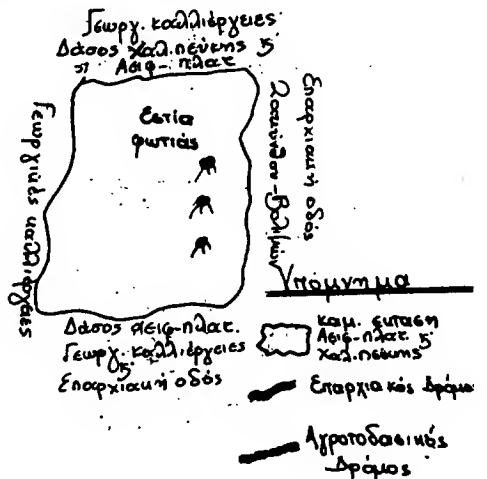 Γεωργ. καλλιέργειες
Δάσος χαλ. πεύκης ή
Αειφ-πλατ.
Γεωργικές καλλιέργειες
Εστία
φωτιάς
Επαρχιακή οδός
Ζακύνθου-Βολιμών
Δάσος αειφ-πλατ.
Γεωργ. καλλιέργειες
Επαρχιακή οδός
Υπόμνημα
καμ. έκταση
Αειφ-πλατ. ή
χαλ. πεύκης
Επαρχιακός δρόμο
Αγροτοδασικός
δρόμος